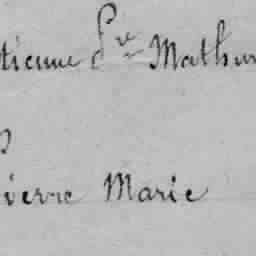 tienne Pre Mathur
ierre Marie